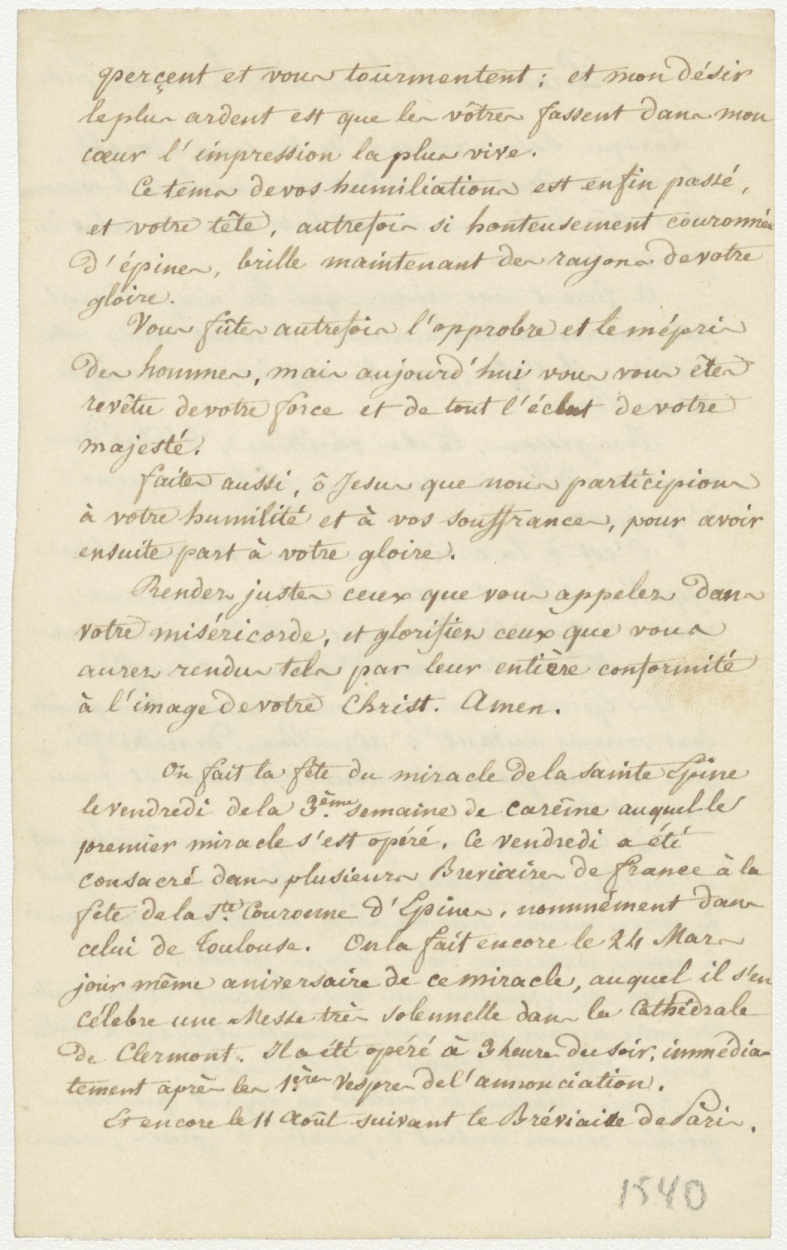 perçent et vous tourmentent ; et mon désir
le plus ardent est que les vôtres fassent dans mon
cœur l'impression la plus vive.
Ce tems de vos humiliations est enfin passé,
et votre tête, autrefois si honteusement couronnée
d'épines, brille maintenant des rayons de votre
gloire.
Vous fûtes autrefois l'opprobre et le mépris
des hommes, mais aujourd'hui vous vous êtes
revêtu de votre force et de tout l'éclat de votre
majesté.
faites aussi, ô Jesus que nous participions
à votre humilité et à vos souffrances, pour avoir
ensuite part à votre gloire.
Rendez justes ceux que vous appelez dans
votre miséricorde, et glorifiez ceux que vous
aurez rendus tels par leur entière conformité
à l'image de votre Christ. Amen.
On fait la fête du miracle de la sainte Epine
le vendredi de la 3.ème semaine de carême auquel le
premier miracle s'est opéré. Ce vendredi a été
consacré dans plusieurs Breviaires de france à la
fête de la S.te Couronne d'Epines, nommément dans
celui de Toulouse. On la fait encore le 24 Mars
jour même aniversaire de ce miracle, auquel il s'en
célebre une Messe très solennelle dans la Cathédrale
de Clermont. Il a été opéré à 3 heures du soir, immédia-
tement après les 1.ères Vespres de l'annonciation.
Et encore le 11 Août suivant le Bréviaire de Paris.
1540